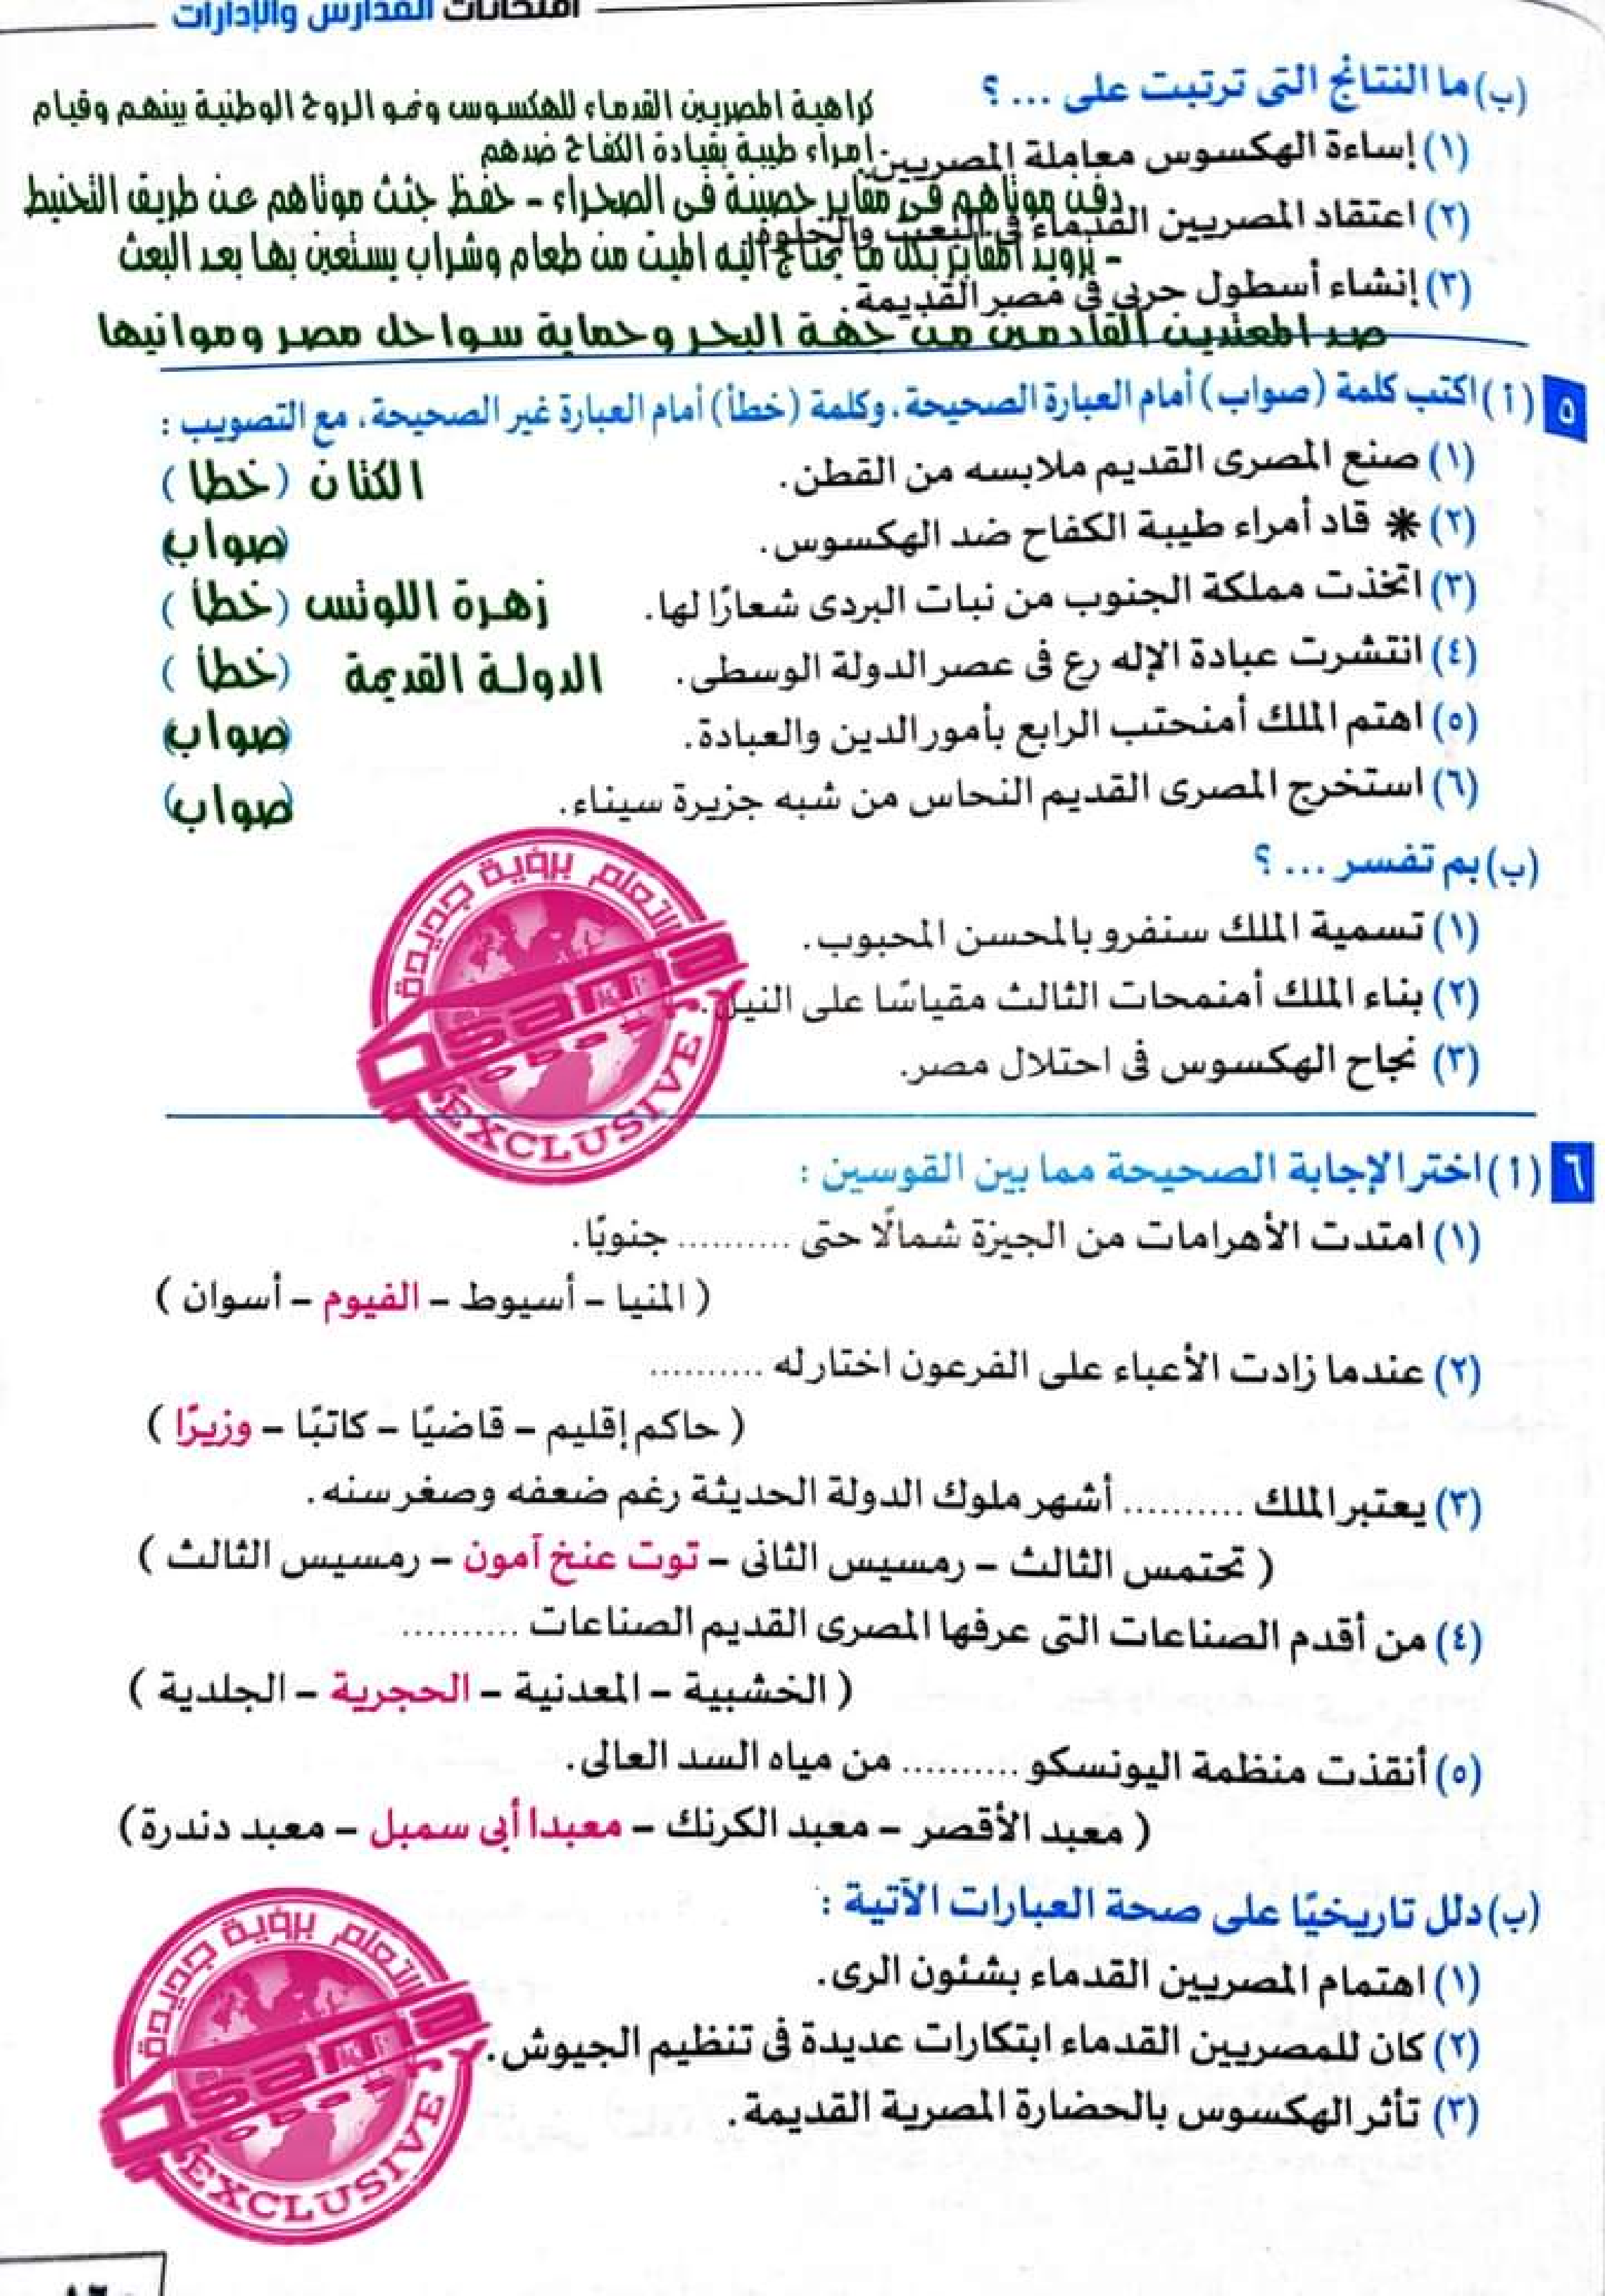 امتحانات المدارس والإدارات
(ب) ما النتائج التى ترتبت على ... ؟
كراهية المصريين القدماء للهكسوس ونمو الروح الوطنية بينهم وقيام
(١) إساءة الهكسوس معاملة المصريين. امراء طيبة بقيادة الكفاح ضدهم
دفن موتاهم فى مقابر حصينة فى الصحراء - حفظ جثث موتاهم عن طريق التحنيط
(٢) اعتقاد المصريين القدماء فى البعث والخلود.
- تزويد المقابر بكل ما يحتاج اليه الميت من طعام وشراب يستعين بها بعد البعث
(٣) إنشاء أسطول حربى فى مصر القديمة.
صد المعتدين القادمين من جهة البحر وحماية سواحل مصر وموانيها
٥ (أ) اكتب كلمة (صواب) أمام العبارة الصحيحة، وكلمة (خطأ) أمام العبارة غير الصحيحة، مع التصويب :
(١) صنع المصرى القديم ملابسه من القطن. الكتان (خطا)
(٢) * قاد أمراء طيبة الكفاح ضد الهكسوس. (صواب)
(٣) اتخذت مملكة الجنوب من نبات البردى شعارًا لها. زهرة اللوتس (خطأ)
(٤) انتشرت عبادة الإله رع فى عصر الدولة الوسطى. الدولة القديمة (خطأ)
(٥) اهتم الملك أمنحتب الرابع بأمور الدين والعبادة. (صواب)
(٦) استخرج المصرى القديم النحاس من شبه جزيرة سيناء. (صواب)
(ب) بم تفسر ... ؟
(١) تسمية الملك سنفرو بالمحسن المحبوب.
(٢) بناء الملك أمنمحات الثالث مقياسًا على النيل.
(٣) نجاح الهكسوس فى احتلال مصر.
التعلم برؤية جديدة
EXCLUSIVE
٦ (أ) اختر الإجابة الصحيحة مما بين القوسين :
(١) امتدت الأهرامات من الجيزة شمالًا حتى .......... جنوبًا.
( المنيا - أسيوط - الفيوم - أسوان )
(٢) عندما زادت الأعباء على الفرعون اختار له ..........
( حاكم إقليم - قاضيًا - كاتبًا - وزيرًا )
(٣) يعتبر الملك .......... أشهر ملوك الدولة الحديثة رغم ضعفه وصغر سنه.
( تحتمس الثالث - رمسيس الثانى - توت عنخ آمون - رمسيس الثالث )
(٤) من أقدم الصناعات التى عرفها المصرى القديم الصناعات ..........
( الخشبية - المعدنية - الحجرية - الجلدية )
(٥) أنقذت منظمة اليونسكو .......... من مياه السد العالى.
( معبد الأقصر - معبد الكرنك - معبدا أبى سمبل - معبد دندرة )
(ب) دلل تاريخيًا على صحة العبارات الآتية :
(١) اهتمام المصريين القدماء بشئون الرى.
(٢) كان للمصريين القدماء ابتكارات عديدة فى تنظيم الجيوش.
(٣) تأثر الهكسوس بالحضارة المصرية القديمة.
التعلم برؤية جديدة
EXCLUSIVE